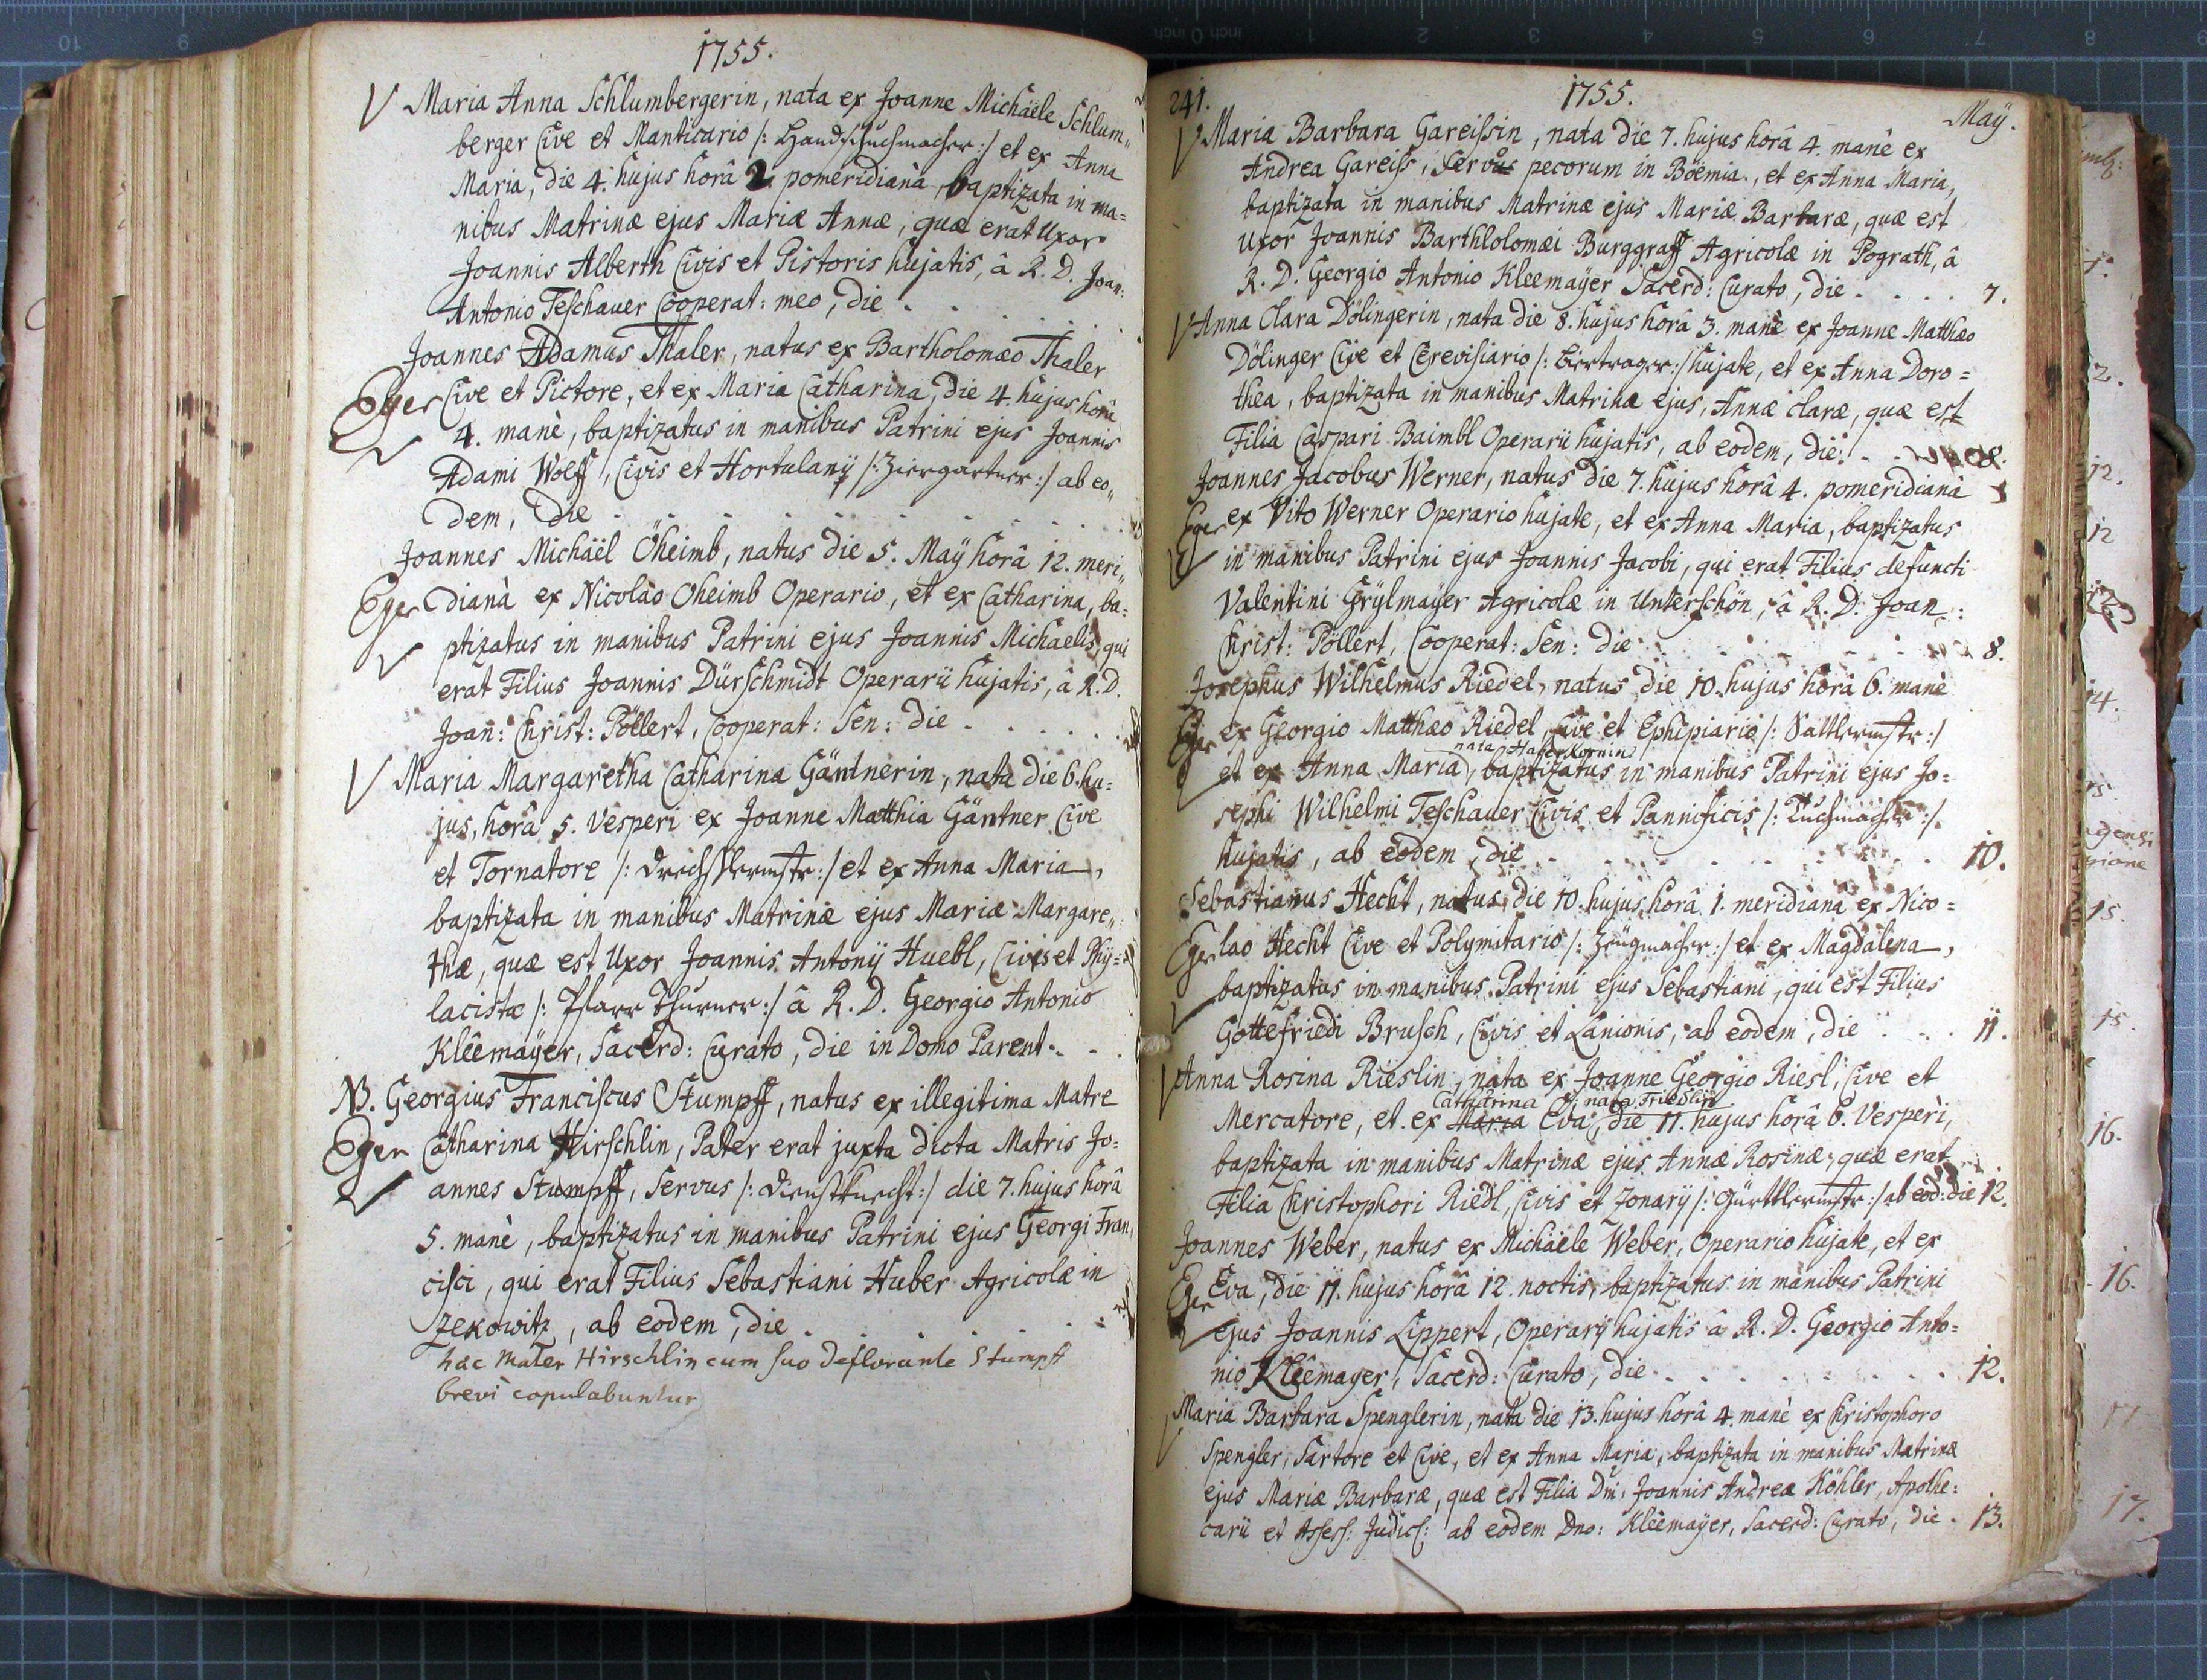 1755.
Maria Anna Schlumbergerin, nata ex Joanne Michäele Schlum„
berger Cive et Manticario /: Handschuchmacher :/ et ex Anna
Maria, die 4. hujus horâ 2 pomeridianâ, baptizata in ma=
nibus Matrinæ ejus Mariæ Annæ, quæ erat Uxor
Joannis Alberth Civis et Pistoris hujatis, â R. D. Joan:
Antonio Teschauer Cooperat: meo, die
Joannes Adamus Thaler, natus ex Bartholomæo Thaler
Eger Cive et Pictore, et ex Maria Catharina, die 4. hujus horâ
4. manè, baptizatus in manibus Patrini ejus Joannis
Adami Wolff, Civis et Hortulanÿ /: Ziergartner :/ ab eo„
dem, die
Joannes Michäël Öheimb, natus die 5. Maÿ horâ 12. meri„
Eger dianà ex Nicolao Oheimb Operario, et ex Catharina, ba=
ptizatus in manibus Patrini ejus Joannis Michaelis, qui
erat Filius Joannis Dürschmidt Operarii hujatis, â R. D.
Joan: Christ: Pöllert, Cooperat: Sen: die
Maria Margaretha Catharina Gäntnerin, nata die 6. hu=
jus, horâ 5. Vesperi ex Joanne Matthia Gäntner Cive
et Tornatore /: Drechslermstr :/ et ex Anna Maria,
baptizata in manibus Matrinæ ejus Mariæ Margare„
thæ, quæ est Uxor Joannis Antonÿ Huebl, Civis et Phÿ=
lacistæ /: Pfarr Thurner :/ â R. D. Georgio Antonio
Kleemaÿer, Sacerd: Curato, die in Domo Parent.
NB. Georgius Franciscus Stumpff, natus ex illegitima Matre
Eger Catharina Hirschlin, Pater erat juxta dicta Matris Jo=
annes Stumpff, Servus /: Dienstknecht :/ die 7. hujus horâ
5. manè, baptizatus in manibus Patrini ejus Georgi Fran„
cisci, qui erat Filius Sebastiani Huber Agricolæ in
Szekowitz, ab eodem, die
hæc Mater Hirschlin cum suo deflorante Stumpff
brevi copulabuntur
241. 1755.
Maÿ.
Maria Barbara Gareissin, nata die 7. hujus horâ 4. manè ex
Andrea Gareiss, Servus pecorum in Böemia, et ex Anna Maria,
baptizata in manibus Matrinæ ejus Mariæ Barbaræ, quæ est
Uxor Joannis Barthlolomæi Burggraff Agricolæ in Pograth, â
R. D. Georgio Antonio Kleemaÿer Sacerd: Curato, die 7.
Anna Clara Dölingerin, nata die 8. hujus horâ 3. manè ex Joanne Matthæo
Dölinger Cive et Cerevisiario /: Biertrager :/ hujate, et ex Anna Doro=
thea, baptizata in manibus Matrinæ ejus, Annæ claræ, quæ est
Filia Caspari Baimbl Operarii hujatis, ab eodem, die 8.
Joannes Jacobus Werner, natus die 7. hujus horâ 4. pomeridianâ
Eger ex Vito Werner Operario hujate, et ex Anna Maria, baptizatus
in manibus Patrini ejus Joannis Jacobi, qui erat Filius defuncti
Valentini Grÿlmaÿer Agricolæ in Unterschön, â R. D. Joan:
Christ: Pöllert, Cooperat: Sen: die 8.
Josephus Wilhelmus Riedel, natus die 10. hujus horâ 6. manè
Eger ex Georgio Matthæo Riedel, Cive et Ephipiario /: Sattlermstr :/
nata Haberkornin
et ex Anna Maria, baptizatus in manibus Patrini ejus Jo=
sephi Wilhelmi Teschauer Civis et Pannificis /: Tuchmacher :/
hujatis, ab eodem, die 10.
Sebastianus Hecht, natus die 10. hujus horâ 1. meridianâ ex Nico=
Eger lao Hecht Cive et Polymitario /: Zeugmacher :/ et ex Magdalena,
baptizatus in manibus Patrini ejus Sebastiani, qui est Filius
Gottefriedi Brusch, Civis et Lanionis, ab eodem, die 11.
Anna Rosina Rieslin, nata ex Joanne Georgio Riesl, Cive et
Catharina nata Friedlin
Mercatore, et ex Maria Eva, die 11. hujus horâ 6. Vesperi,
baptizata in manibus Matrinæ ejus Annæ Rosinæ, quæ erat
Filia Christophori Riedl, Civis et Zonarÿ /: Gürttlermstr :/ ab eod: die 12.
Joannes Weber, natus ex Michäele Weber, Operario hujate, et ex
Eger Eva, die 11. hujus horâ 12. noctis, baptizatus in manibus Patrini
ejus Joannis Lippert, Operarÿ hujatis â R. D. Georgio Anto=
nio Kleemayer, Sacerd: Curato, die 12.
Maria Barbara Spenglerin, nata die 13. hujus horâ 4. manè ex Christophoro
Spengler, Sartore et Cive, et ex Anna Maria, baptizata in manibus Matrinæ
ejus Mariæ Barbaræ, quæ est Filia Dni: Joannis Andreæ Köhler, Apothe=
carii et Assess: Judics: ab eodem Dno: Kleemaÿer, Sacerd: Curato, die 13.